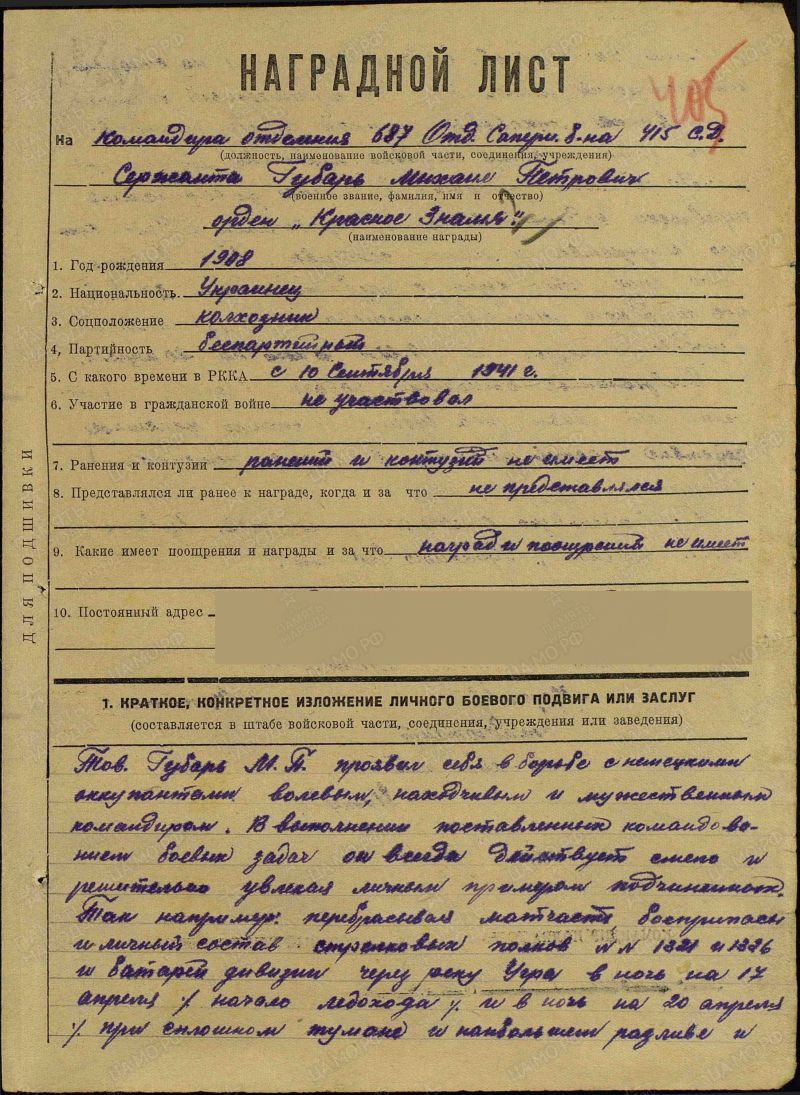 НАГРАДНОЙ ЛИСТ
405
На Командира отделения 687 Отд. Саперн. б-на 415 с.д.
(должность, наименование войсковой части, соединения, учреждения)
Сержанта Губарь Михаил Петрович
(военное звание, фамилия, имя и отчество)
орден „Красное Знамя"
(наименование награды)
1. Год рождения 1908
2. Национальность. Украинец
3. Соцположение колхозник
4, Партийность беспартийный
5. С какого времени в РККА с 10 Сентября 1941 г.
6. Участие в гражданской войне не участвовал
7. Ранения и контузии ранений и контузий не имеет
8. Представлялся ли ранее к награде, когда и за что не представлялся
9. Какие имеет поощрения и награды и за что наград и поощрений не имеет
10. Постоянный адрес
ДЛЯ ПОДШИВКИ
1. КРАТКОЕ, КОНКРЕТНОЕ ИЗЛОЖЕНИЕ ЛИЧНОГО БОЕВОГО ПОДВИГА ИЛИ ЗАСЛУГ
(составляется в штабе войсковой части, соединения, учреждения или заведения)
Тов. Губарь М.П. проявил себя в борьбе с немецкими
оккупантами волевым, находчивым и мужественным
командиром. В выполнении поставленных командова-
нием боевых задач он всегда действует смело и
решительно увлекая личным примером подчиненных.
Так например: перебрасывая матчасть боеприпасы
и личный состав стрелковых полков NN 1321 и 1326
и батарей дивизии через реку Угра в ночь на 17
апреля /. начало ледохода /. и в ночь на 20 апреля
/. при сплошном тумане и наибольшем разливе и